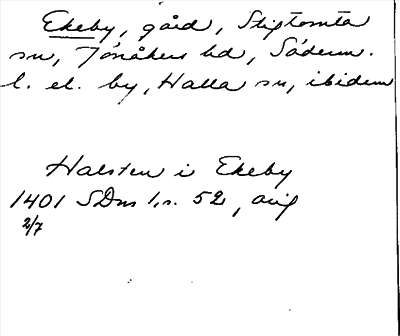 Ekeby, gård, Stigtomta
sn, Jönåkers hd, Söderm.
l. el. by, Halla sn, ibidem
Halsten i Ekeby
1401 SDns 1, s. 52, avig
2/7